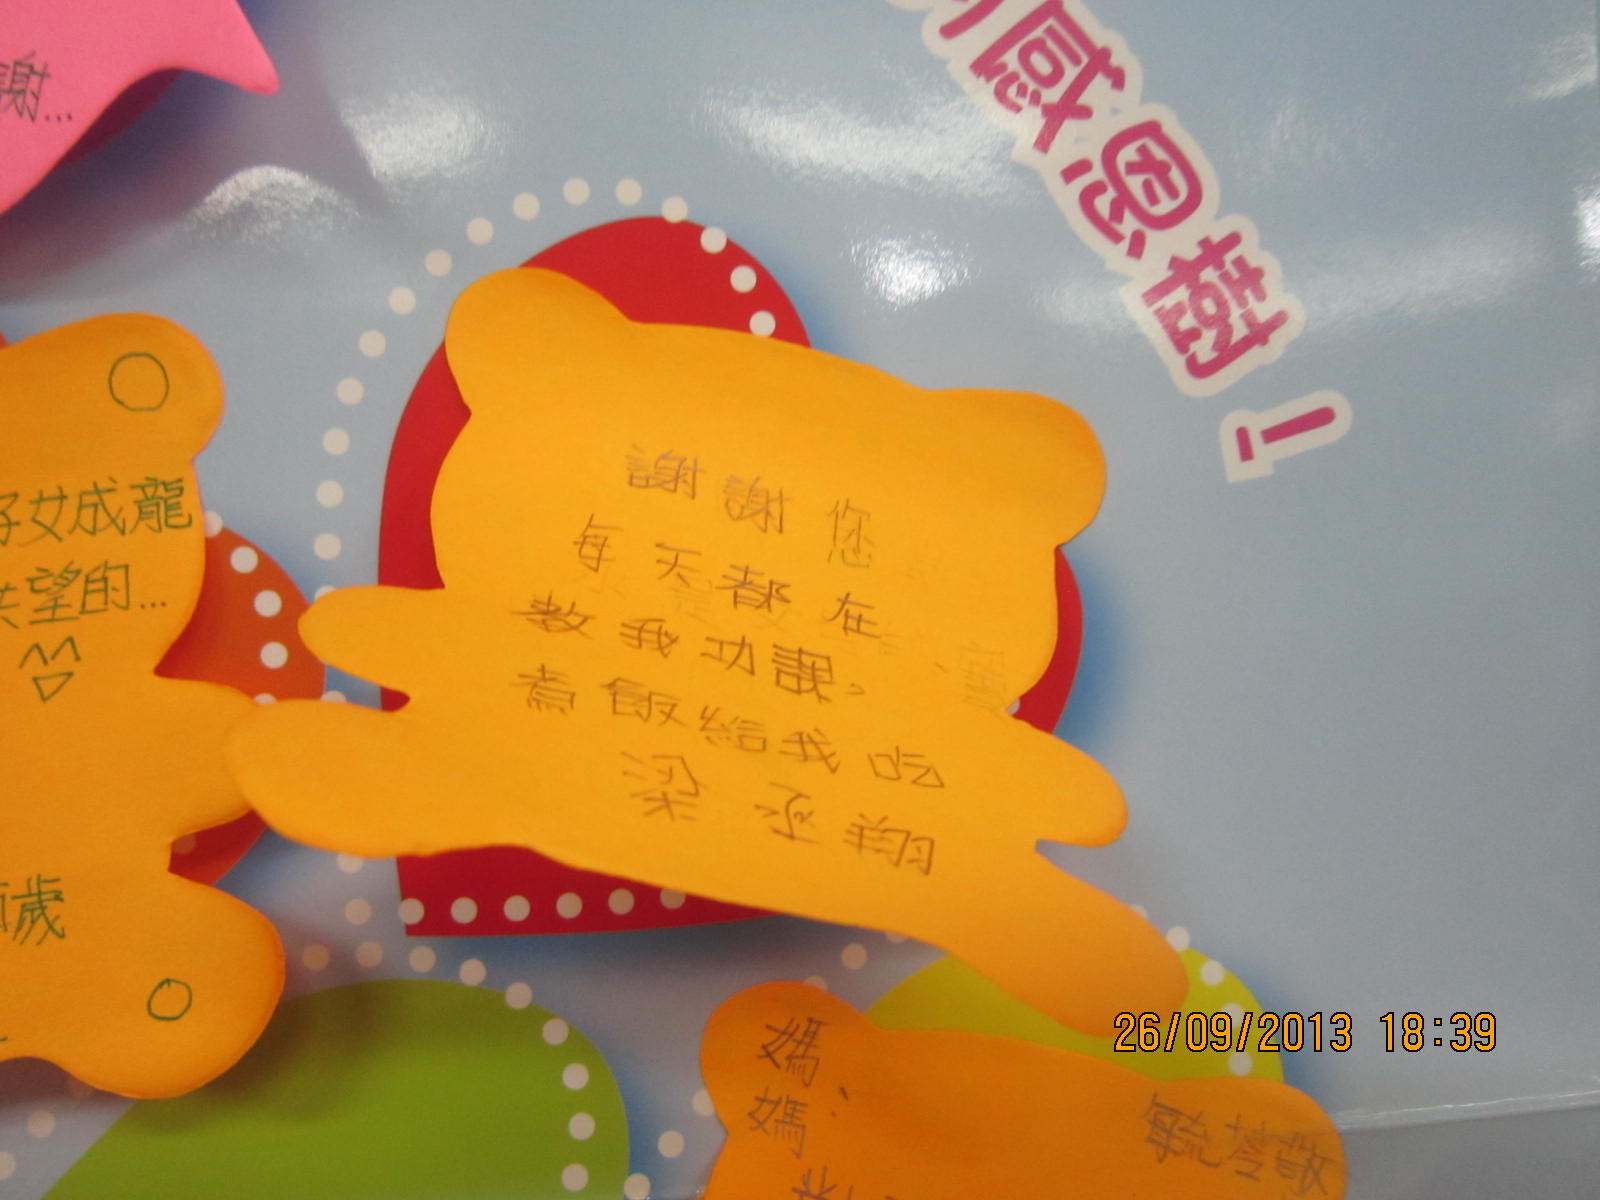 感恩樹！
謝...
好女成龍
失望的...
歲
謝謝您
每天都在
教我功課，
煮飯給我吃
梁丞翔
26/09/2013 18:39
媽媽：
敬